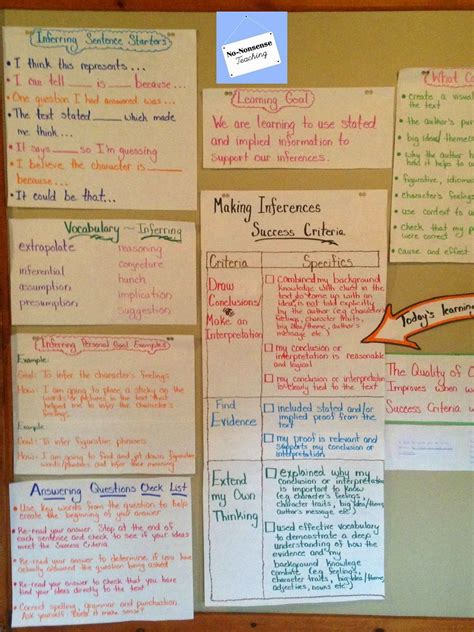 No-Nonsense
Teaching
Inferring Sentence Starters
• I think this represents...
• I can tell ___ is ___ because...
• One question I had answered was...
• The text stated ___ which made
me think...
• It says ___ so I'm guessing
• I believe the character is ___
because...
• It could be that...
Vocabulary ~ Inferring
extrapolate
inferential
assumption
presumption
reasoning
conjecture
hunch
implication
suggestion
Inferring Personal Goal Examples
Example:
Goal: To infer the character's feelings
How: I am going to place a sticky on the
words or pictures in the text that
helped me to infer the character's
feelings.
Example:
Goal: To infer figurative phrases
How: I am going to find and jot down figurative
words/phrases and infer their meaning
Answering Questions Check List
• Use key words from the question to help
create the beginning of your answer
• Re-read your answer. Stop at the end of
each sentence and check to see if your ideas
meet the Success Criteria.
• Re-read your answer to determine if you have
actually answered the question being asked.
• Re-read your answer to check that you have
find your ideas directly to the text
• Correct spelling, grammar and punctuation.
Ask yourself: "Does it make sense?"
Learning Goal
We are learning to use stated
and implied information to
support our inferences.
Making Inferences
Success Criteria
Criteria
Specifics
Draw
Conclusions/
Make an
Interpretation
combined my background
knowledge with clues in the text
to come up with an
idea, is not told explicitly
by the author (e.g character's
feelings, character traits,
big idea/theme, author's
message etc.)
my conclusion or
interpretation is reasonable
and logical
my conclusion or interpretation
is clearly tied to the text
Find
Evidence
included stated and/or
implied proof from the
text
my proof is relevant and
supports my conclusion or
interpretation
Extend
my Own
Thinking
explained why my
conclusion or interpretation
is important to know
(e.g character's feelings,
character traits, big idea/theme,
author's message etc.)
used effective vocabulary
to demonstrate a deep
understanding of how the
evidence and my
background knowledge
combine (e.g feelings,
character traits, big idea/theme,
adjectives, nouns etc.
What Co
• create a visual
the text
• the author's pur
• big idea/theme
• why the author
told it helps to
• figurative, idiom
• character's feelings
• use context to
• check that my p
were correct
• cause and effect
Today's learning
The Quality of
Improves when
Success Criteria.